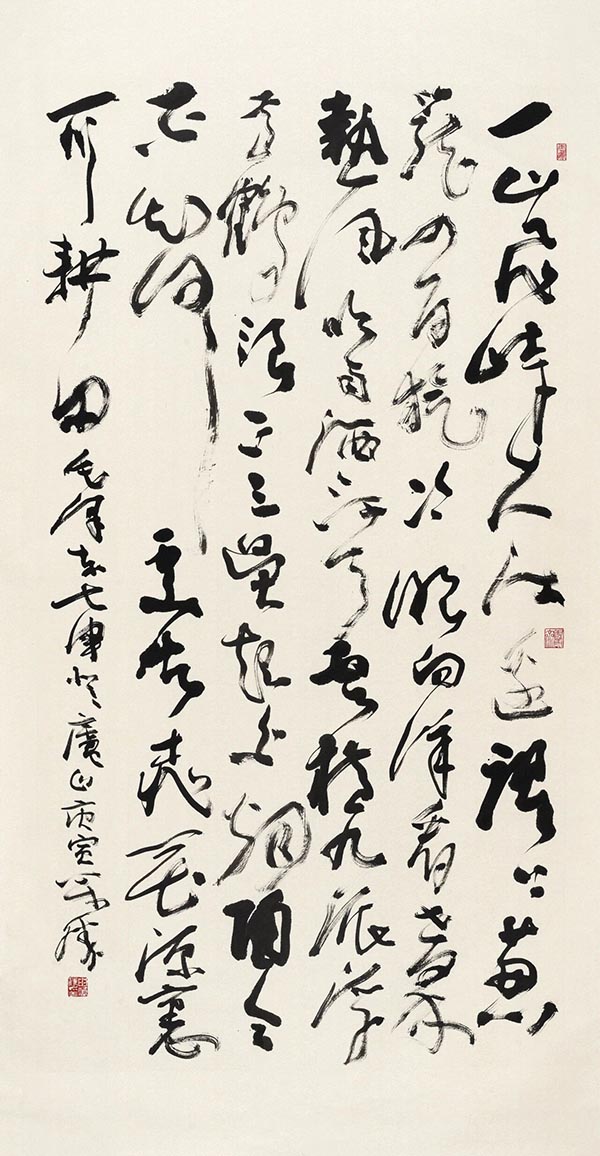 一山飛峙大江邊躍上葱
蘢四百旋冷眼向洋看世界
熱風吹雨洒江天雲橫九派浮
黃鶴浪下三吳起白烟陶令
不知何處去桃花源裏
可耕田毛澤東七律登廬山庚寅